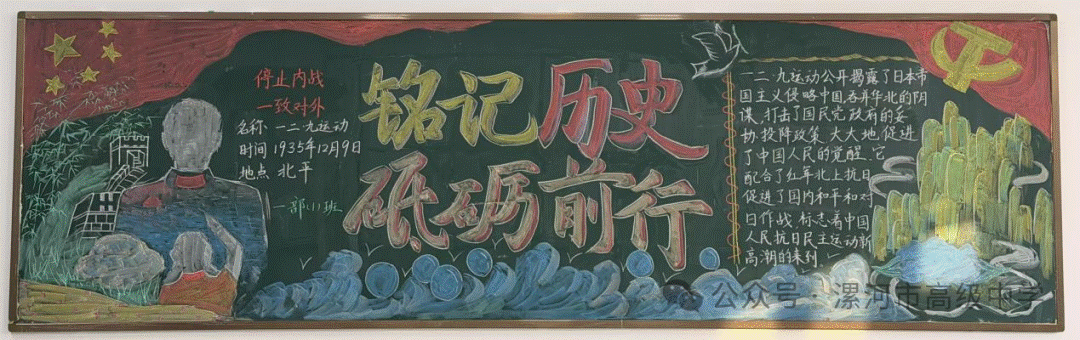 停止内战
一致对外
名称 一二·九运动
时间 1935年12月9日
地点 北平
一部(1)班
铭记历史
砥砺前行
一二·九运动公开揭露了日本帝
国主义侵略中国,吞并华北的阴
谋,打击了国民党政府的妥
协投降政策,大大地促进
了中国人民的觉醒。它
配合了红军北上抗日
促进了国内和平和对
日作战,标志着中国
人民抗日民主运动新
高潮的来到
公众号·漯河市高级中学